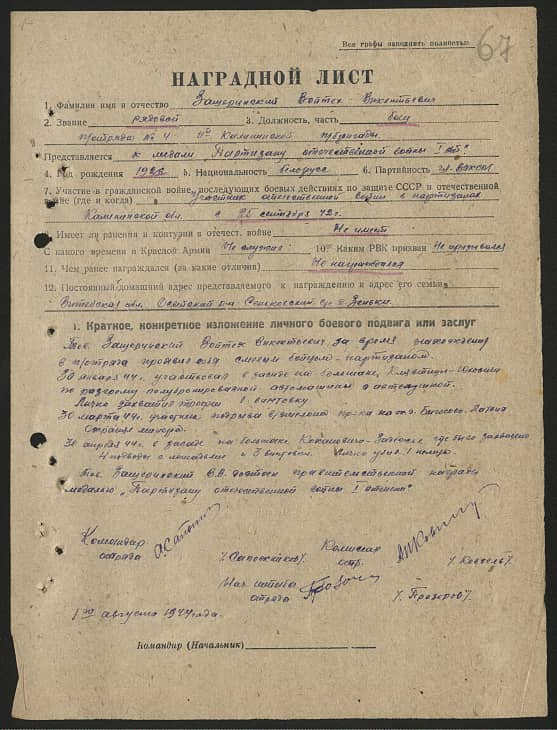 Все графы заполнять полностью
67
НАГРАДНОЙ ЛИСТ
1. Фамилия имя и отчество Защеринский Войтех Викентьевич
2. Звание рядовой 3. Должность, часть боец
п/отряда № 4 Калининской п/бригады
Представляется к медали „Партизану отечественной войны I ст."
4. Год рождения 5. Национальность белорус 6. Партийность чл. ВЛКСМ
7. Участие в гражданской войне, последующих боевых действиях по защите СССР и отечественной
войне (где и когда) Участник отечественной войны в партизанах
Калининской обл. с 25 сентября 42 г.
8. Имеет ли ранения и контузии в отечест. войне Не имеет
С какого времени в Красной Армии Не служил 10. Каким РВК призван Не призывался
11. Чем ранее награждался (за какие отличия) Не награждался
12. Постоянный домашний адрес представляемого к награждению и адрес его семьи
Витебская обл. Освейский р-н
I. Краткое, конкретное изложение личного боевого подвига или заслуг
Тов. Защеринский Войтех Викентьевич за время нахождения
в п/отряде проявил себя смелым боевым партизаном.
30 января 44 г. участвовал в засаде на большаке
по разгрому полубронированной автомашины
Лично захватил трофеи 1 винтовку.
30 марта 44 г. участник подрыва вр. эшелона
30 апреля 44 г. в засаде на большаке Коханович где было захвачено
4 подводы с лошадьми и 3 винтовки. Лично убил 1 немца.
Тов. Защеринский В.В. достоин правительственной награды
медалью „Партизану отечественной войны I степени"
Командир отряда
Комиссар отр.
Нач. штаба отряда
/Прозоров/
1го августа 1944 года.
Командир (Начальник)